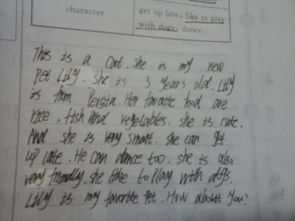 character
get up late, like to play
with dogs, dance
This is a cat. she is my new
pet Lily. she is 3 years old. Lily
is from Persia. Her favorite food are
rice. fish and vegetables. she is cute.
And she is very smart. she can get
up late. He can dance too. she is also
very friendly. she like to play with dogs
Lily is my favorite pet. How about you?